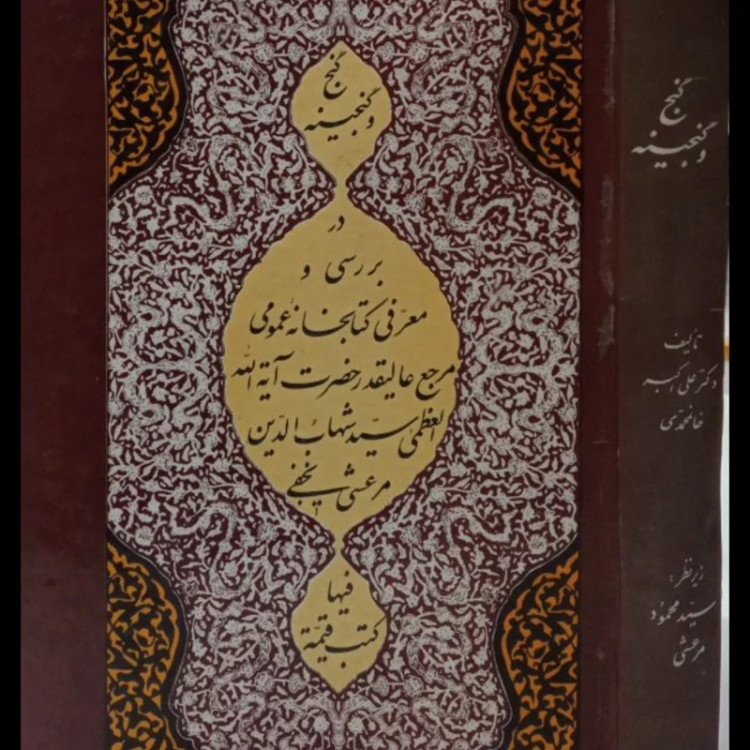 گنج
و گنجینه
در
بررسی و
معرّفی کتابخانهٔ عمومی
مرجع عالیقدر حضرت آیة اللّه
العظمی سیّد شهاب الدّین
مرعشی نجفی
فیها
کتب قیّمة
گنج
و گنجینه
تألیف
دکتر علی اکبر
خانمحمّدی
زیر نظر:
سیّد محمود
مرعشی